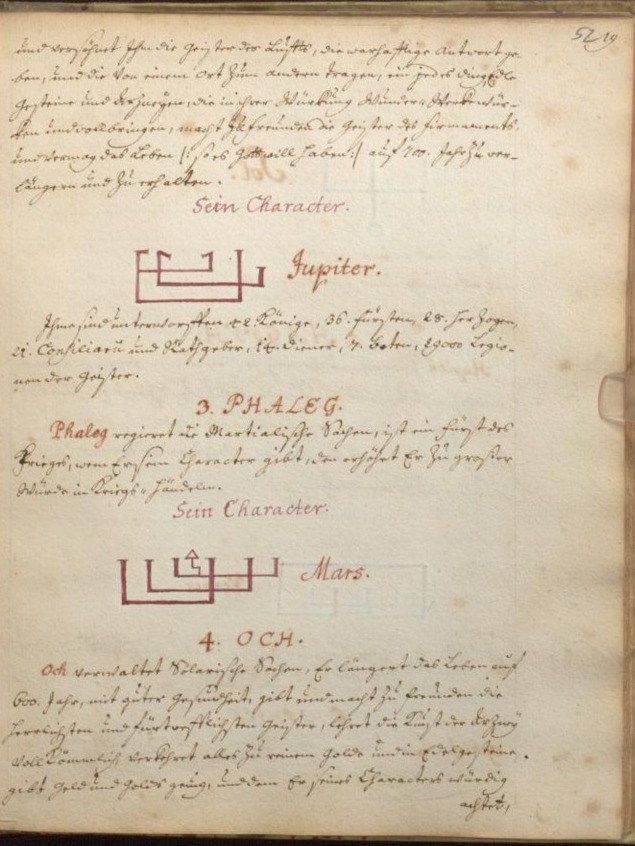 52 19
und versöhnet Ihm die Geister des Luffts, die warhafftige Antwort ge-
ben, und die von einem Ort zum andern tragen, ein jedes Ding, Edle
Gesteine und Artzneyen, die in ihrer Würckung Wunder-Werke wür-
ken und vollbringen, macht zu freunden die Geister des firmaments,
und vermag das Leben |: so es Gott will haben :| auf 700. Jahr zu ver-
längern und zu erhalten.
Sein Character.
Jupiter.
Ihme sind unterworffen 42. Könige, 35. fürsten, 28. Herzogen,
21. Consiliarii und Rathgeber, 14. Diener, 7. Boten, 29000 Legio-
nen der Geister.
3. PHALEG.
Phaleg regieret die Martialische Sachen, ist ein fürst des
Krieges, wem Er sein Character gibt, den erhöhet Er zu großer
Würde in Kriegs-Händeln.
Sein Character.
Mars.
4. OCH.
Och verwaltet Solarische Sachen, Er längert das Leben auf
600. Jahr, mit guter Gesundheit, gibt und macht zu freunden die
herrlichsten und fürtrefflichsten Geister, lehret die Kunst der Artzney
vollkömmlich, verkehret alles zu reinem Golde und in Edelgesteine,
gibt Geld und Golds genug, und dem Er seines Characters würdig
achtet,